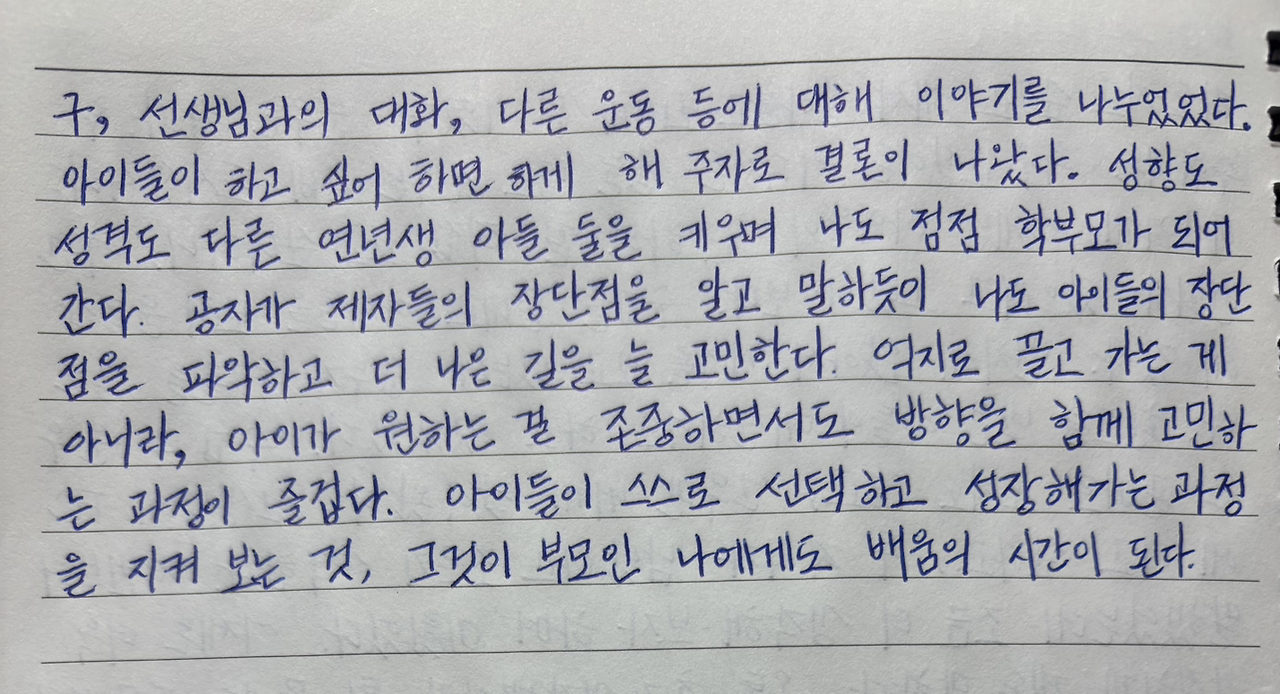 구, 선생님과의 대화, 다른 운동 등에 대해 이야기를 나누었었다.
아이들이 하고 싶어 하면 하게 해 주자로 결론이 나왔다. 성향도
성격도 다른 연년생 아들 둘을 키우며 나도 점점 학부모가 되어
간다. 공자가 제자들의 장단점을 알고 말하듯이 나도 아이들의 장단
점을 파악하고 더 나은 길을 늘 고민한다. 억지로 끌고 가는 게
아니라, 아이가 원하는 걸 존중하면서도 방향을 함께 고민하
는 과정이 즐겁다. 아이들이 스스로 선택하고 성장해가는 과정
을 지켜 보는 것, 그것이 부모인 나에게도 배움의 시간이 된다.